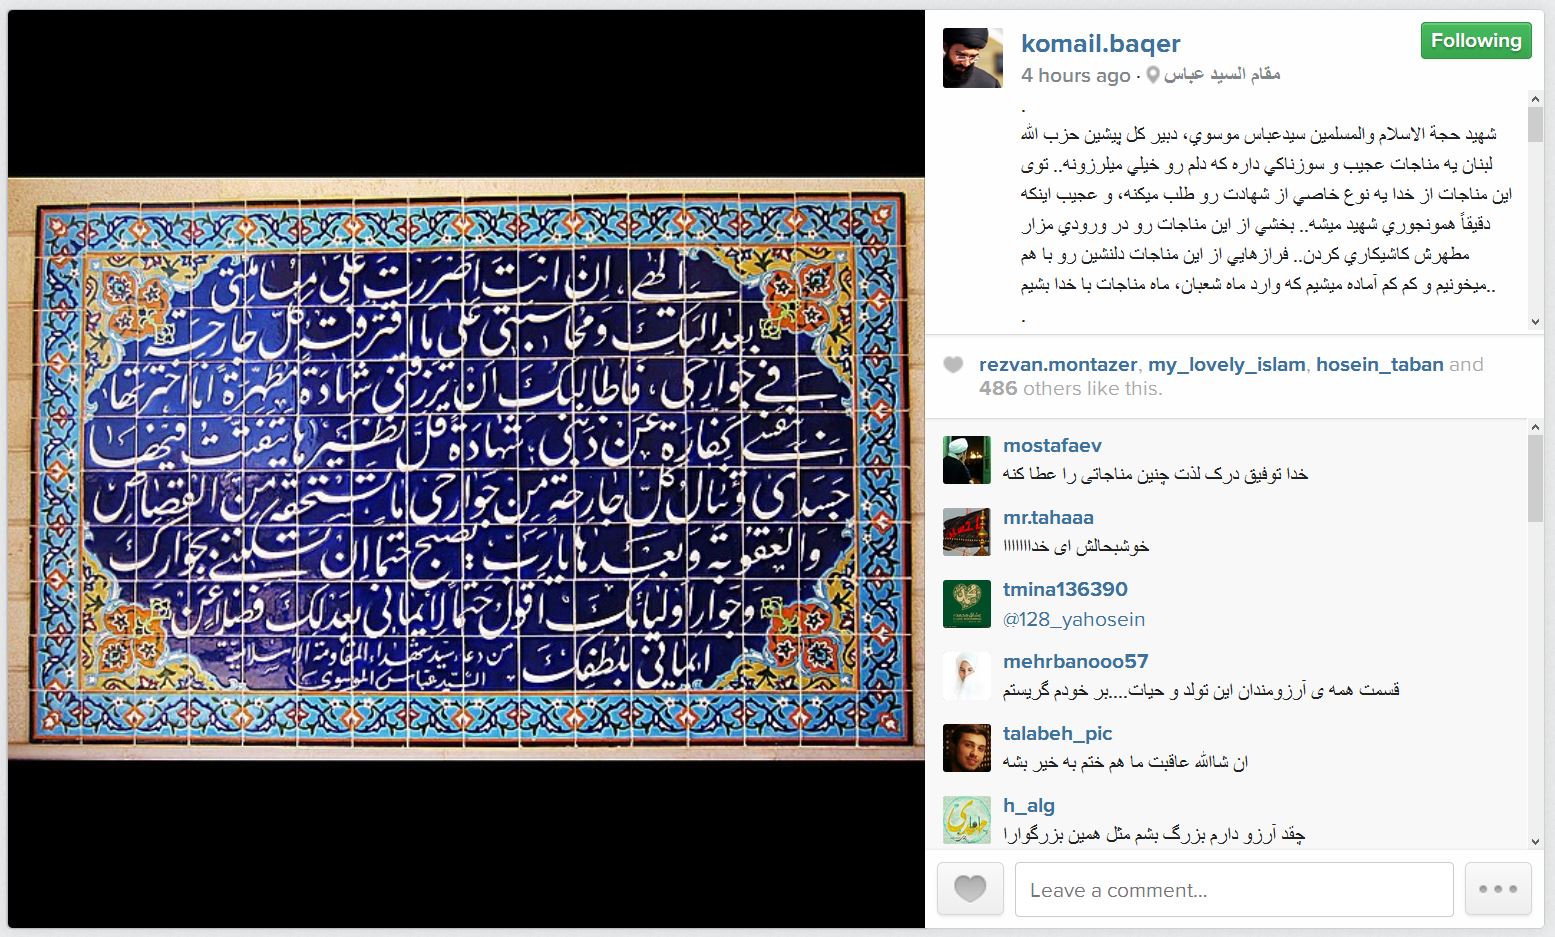 الهي، ان انت اضررت علي معاملتي
بعدلك ومحاسبتي علي ما اقترفته كل جارحة
في جوارحي، فاطالبك ان يرزقني شهادة مطهرة انا اخترتها
بنفسي كفارة عن ذنبي؛ شهادة قل نظيرها يتفتت فيها
جسدي وينال كل جارحة من جوارحي ما تستحقه من القصاص
والعقوبة وبعدها يا رب يصبح حتما ان تسكنني بجوارك
وجوار اوليائك اقول حتما لايماني بعدلك فضلا عن
ايماني بلطفك
من دعاء سيد شهداء المقاومة الاسلامية
السيد عباس الموسوي
komail.baqer
Following
4 hours ago · مقام السيد عباس
.
شهيد حجة الاسلام والمسلمين سيدعباس موسوي، دبير كل پيشين حزب الله
لبنان يه مناجات عجيب و سوزناكي داره كه دلم رو خيلي ميلرزونه.. توی
اين مناجات از خدا يه نوع خاصي از شهادت رو طلب ميكنه، و عجيب اينكه
دقيقاً همونجوري شهيد ميشه.. بخشي از اين مناجات رو در ورودي مزار
مطهرش كاشيكاري كردن.. فرازهايي از اين مناجات دلنشين رو با هم
ميخونيم و كم كم آماده ميشيم كه وارد ماه شعبان، ماه مناجات با خدا بشيم..
.
rezvan.montazer, my_lovely_islam, hosein_taban and
486 others like this.
mostafaev
خدا توفیق درک لذت چنین مناجاتی را عطا کنه
mr.tahaaa
خوشبحالش ای خداااااااا
tmina136390
@128_yahosein
mehrbanooo57
قسمت همه ی آرزومندان این تولد و حیات....بر خودم گریستم
talabeh_pic
ان شاالله عاقبت ما هم ختم به خیر بشه
h_alg
چقد آرزو دارم بزرگ بشم مثل همین بزرگوارا
Leave a comment...